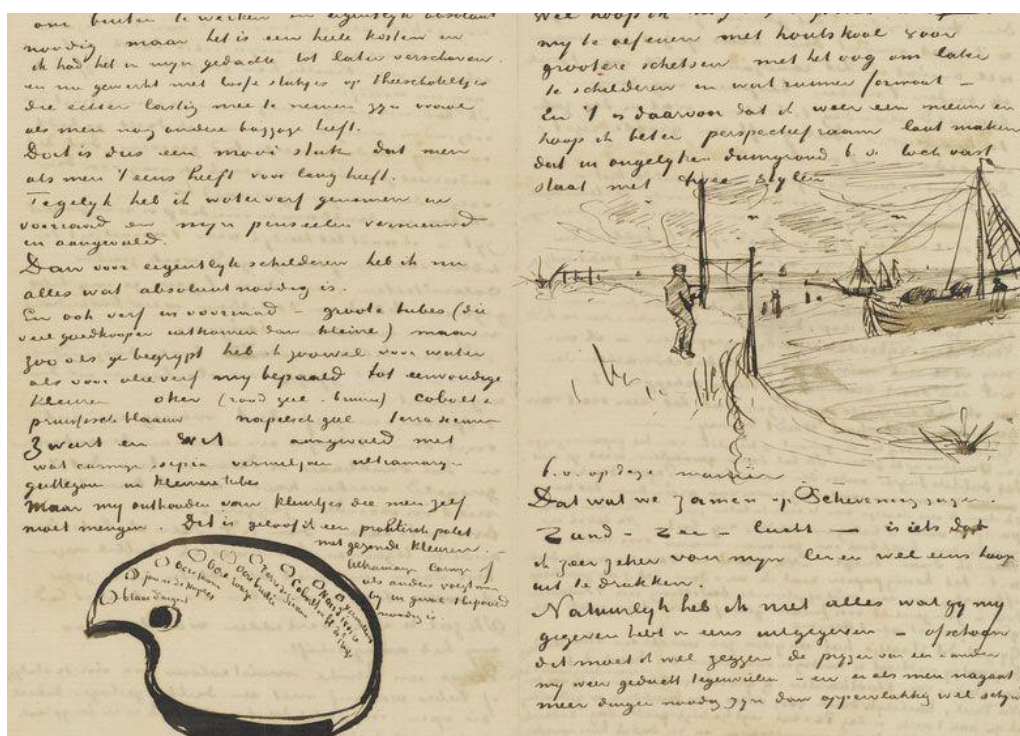 om buiten te werken en eigentlijk absoluut
noodig maar het is een heele kosten en
ik had het in mijn gedachte tot later verschoven.
en nu gewerkt met losse stukjes op theeschoteltjes
die echter lastig mee te nemen zijn vooral
als men nog andere baggage heeft.
Dat is dus een mooi stuk dat men
als men 't eens heeft voor lang heeft.
Tegelyk heb ik waterverf genomen in
voorraad en mijn penseelen vernieuwd
en aangevuld.
Dan voor eigentlyk schilderen heb ik nu
alles wat absoluut noodig is.
En ook verf in voorraad – groote tubes (die
veel goedkooper uitkomen dan kleine) maar
zoo als ge begrypt heb ik zoowel voor water
als voor olieverf my bepaald tot eenvoudige
kleuren oker (rood geel – bruin) cobolt &
pruissischblaauw napelsch geel terra sienna
zwart en wit aangevuld met
wat carmyn sepia vermiljoen ultramaryn
guttegom in kleinere tubes
Maar my onthouden van kleurtjes die men zelf
moet mengen. Dit is geloof ik een praktisch palet
met gezonde kleuren. –
Ultramaryn Carmyn
als anders voegt men
by in geval 't bepaald
noodig is
blanc d'argent
jaune de Naples
Ocre jaune
Ocre rouge
Ocre brulée
Terre de Sienne
Cobalt
Bleu de Prusse
Noir d'ivoire
Vermillon
my te oefenen met houtskool voor
grootere schetsen met het oog om later
te schilderen in wat ruimer formaat –
En 't is daarvoor dat ik weer een nieuw en
hoop ik beter perspectiefraam laat maken
dat in ongelyken duingrond b.v. toch vast
staat met twee stylen
b.v. op deze manier
Dat wat we zamen op Scheveningen zagen.
Zand – Zee – Lucht – is iets dat
ik zeer zeker van mijn leven wel eens hoop
uit te drukken.
Natuurlyk heb ik niet alles wat gy my
gegeven hebt in eens uitgegeven – ofschoon
dit moet ik wel zeggen de pryzen van een & ander
my weer geducht tegenvielen – en er als men nagaat
meer dingen noodig zyn dan oppervlakkig wel schynt